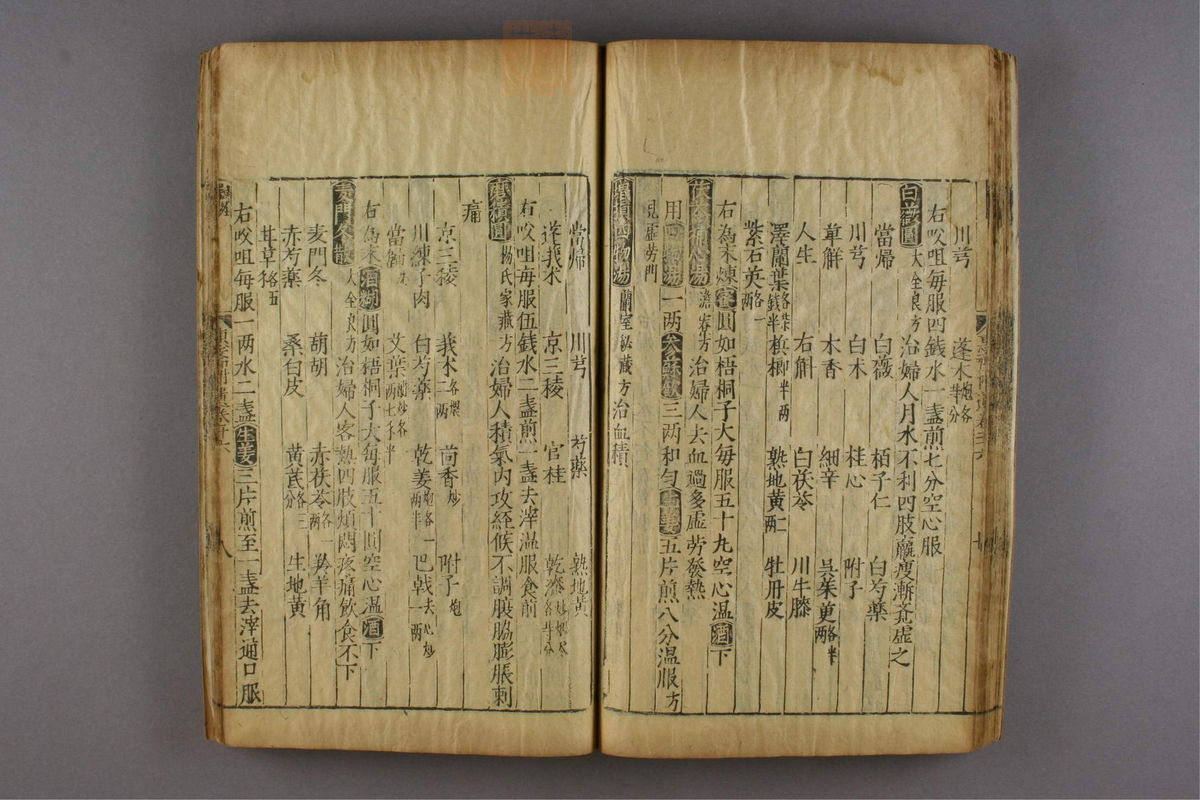 川芎 蓬木
右㕮咀每服四錢水一盞煎七分空心服
白薇圓 大全良方 治婦人月水不利四肢羸瘦漸至虛乏
當歸 白薇 栢子仁 白芍藥
川芎 白木 桂心 附子
萆解 木香 細辛 吳茱萸
人生 石斛 白茯苓 川牛膝
澤蘭葉 檳榔 半兩 熟地黃 牡丹皮
紫石英
右為末煉蜜圓如梧桐子大每服五十丸空心温酒下
茯苓補心湯 治婦人去血過多虛勞發熱
用四物湯一兩參蘇飲三兩和勻生姜五片煎八分温服方
見虛勞門
增損四物湯 蘭室秘藏方 治血積
當歸 川芎 芍藥 熟地黃
蓬莪朮 京三稜 官桂 乾漆
右㕮咀每服伍錢水二盞煎一盞去滓温服食前
磨積圓 楊氏家藏方 治婦人積氣內攻經候不調腹脇膨脹刺
痛
京三稜 莪朮 茴香炒 附子炮
川練子肉 白芍藥 乾姜 巴戟
當歸 艾葉
右為末酒糊圓如梧桐子大每服五十圓空心温酒下
麥門冬散 大全良方 治婦人客熱四肢煩悶疼痛飲食不下
麥門冬 胡胡 赤茯苓 羚羊角
赤芍藥 桑白皮 黃芪 生地黃
甘草
右㕮咀每服一兩水二盞生姜三片煎至一盞去滓通口服